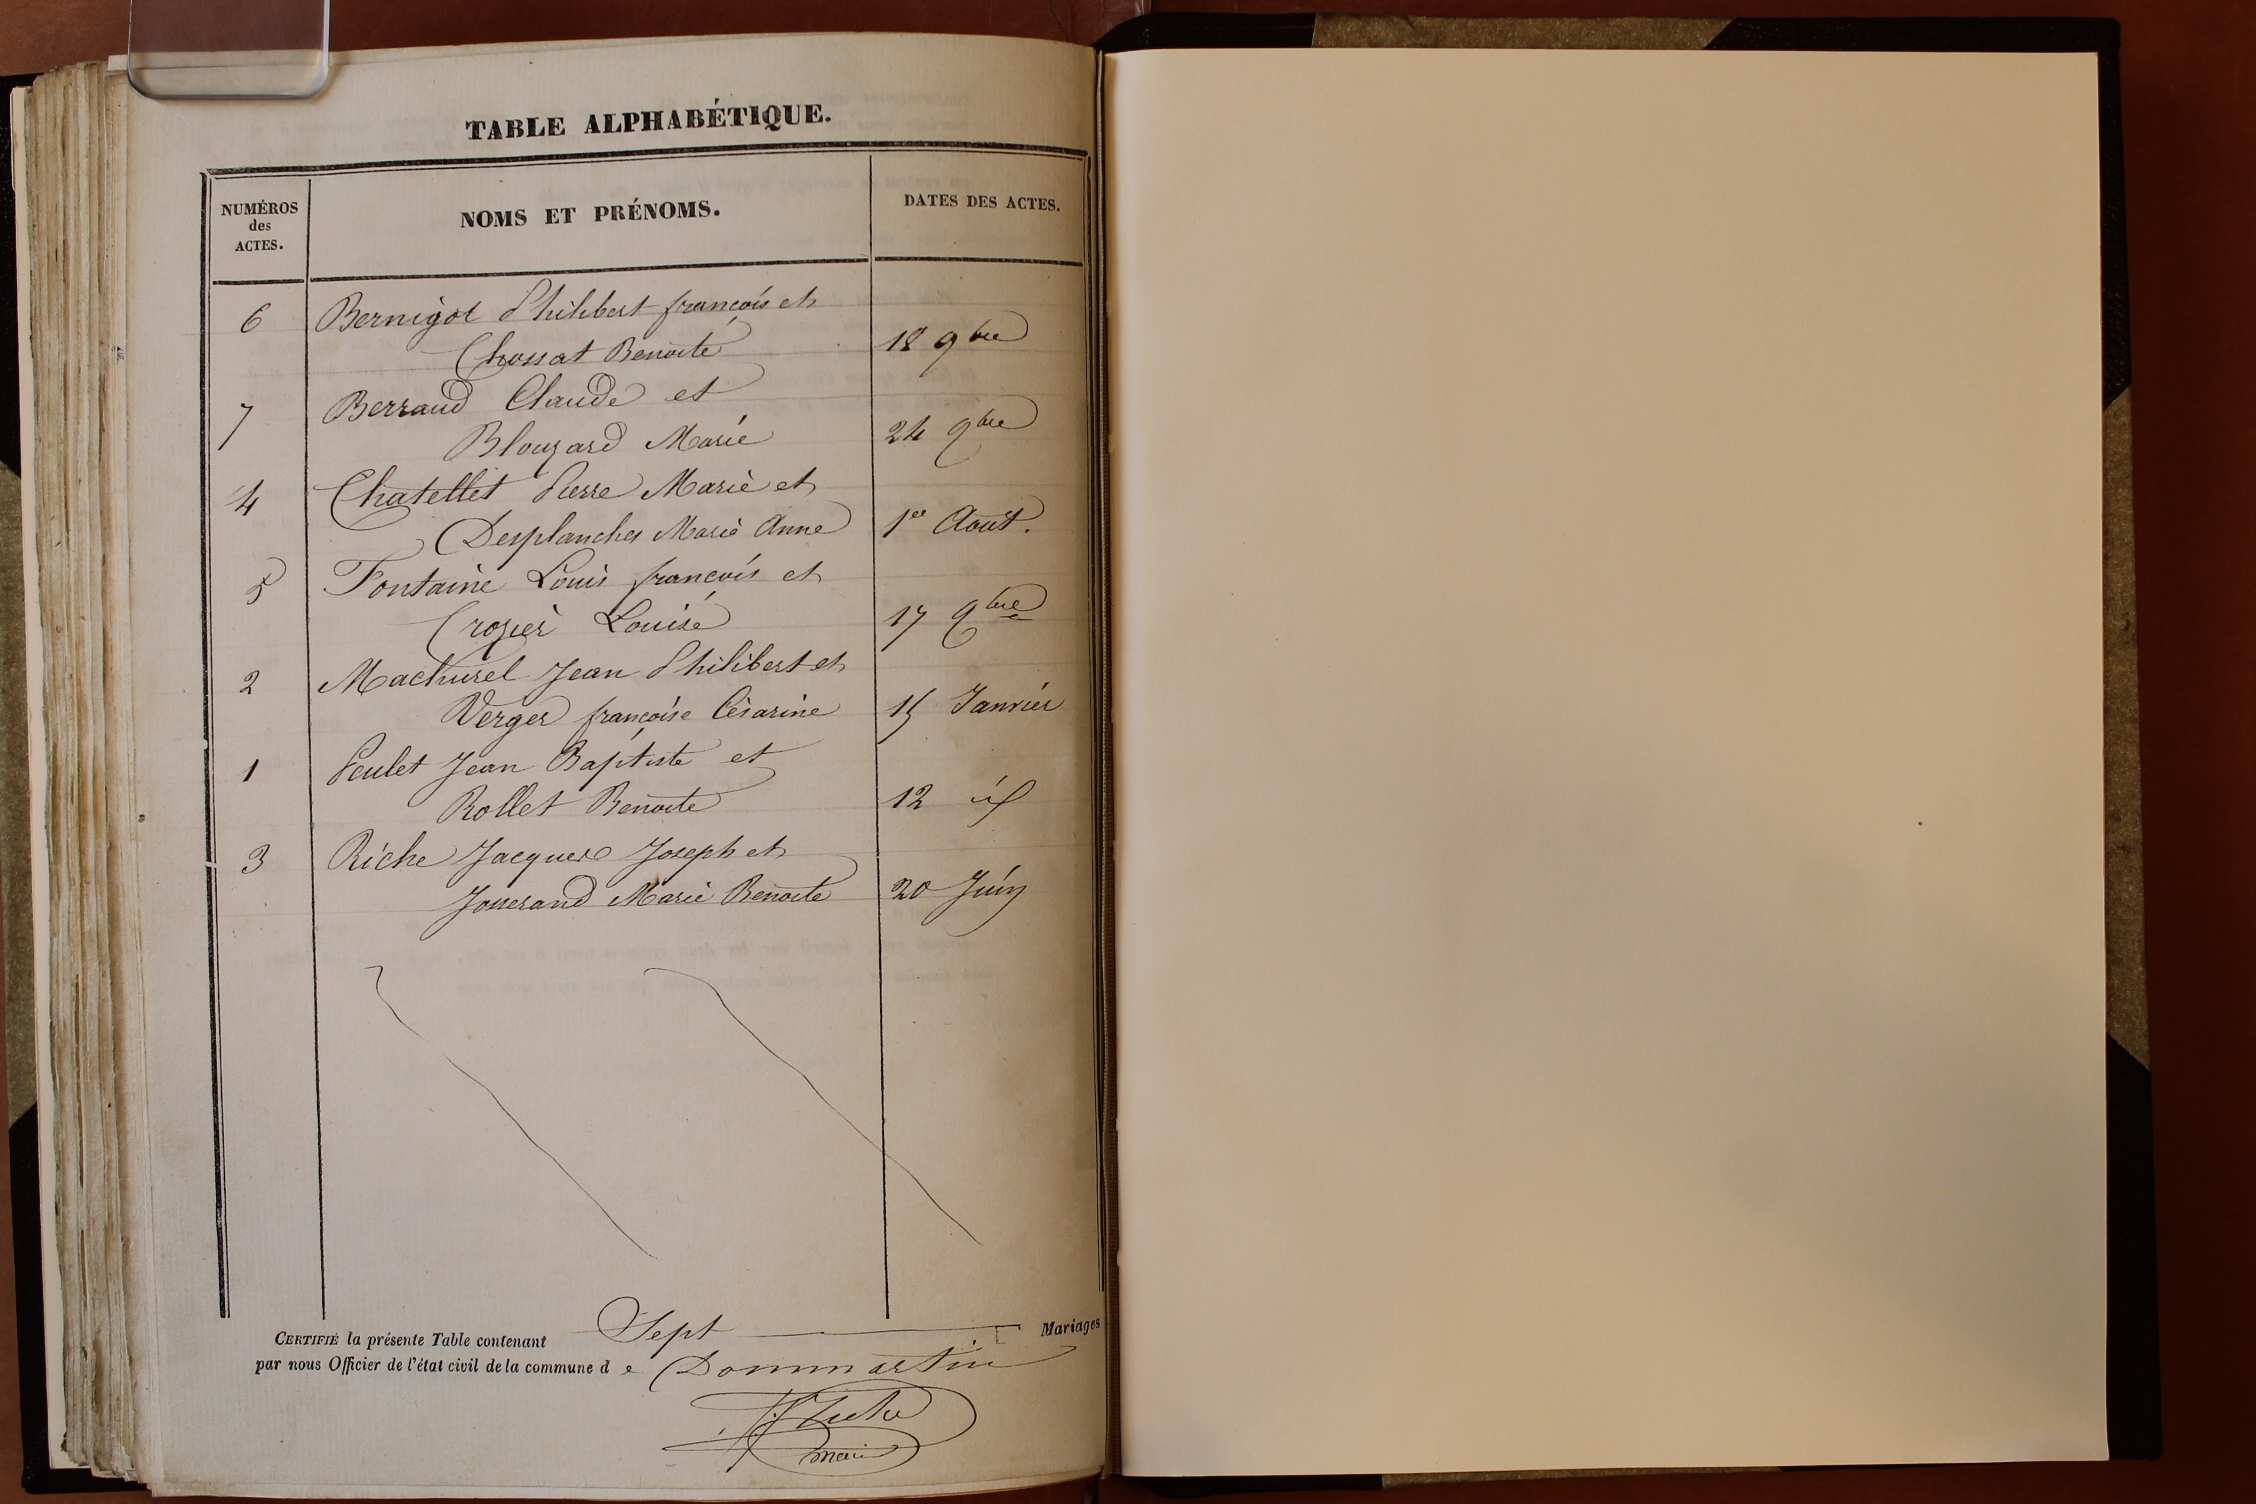 TABLE ALPHABÉTIQUE.
NUMÉROS des ACTES.
NOMS ET PRÉNOMS.
DATES DES ACTES.
6 Bernigot Philibert françois et
Chossat Benoite 18 9bre
7 Berraud Claude et
Blouzard Marie 24 9bre
4 Chatellet Pierre Marie et
Desplanches Marie Anne 1er Août.
5 Fontaine Louis françois et
Crozier Louise 17 9bre
2 Machurel Jean Philibert et
Verger françoise Césarine 15 Janvier
1 Peulet Jean Baptiste et
Rollet Benoite 12 id
3 Riche Jacques Joseph et
Josserand Marie Benoite 20 Juin
CERTIFIÉ la présente Table contenant Sept Mariages
par nous Officier de l'état civil de la commune de Dommartin
maire